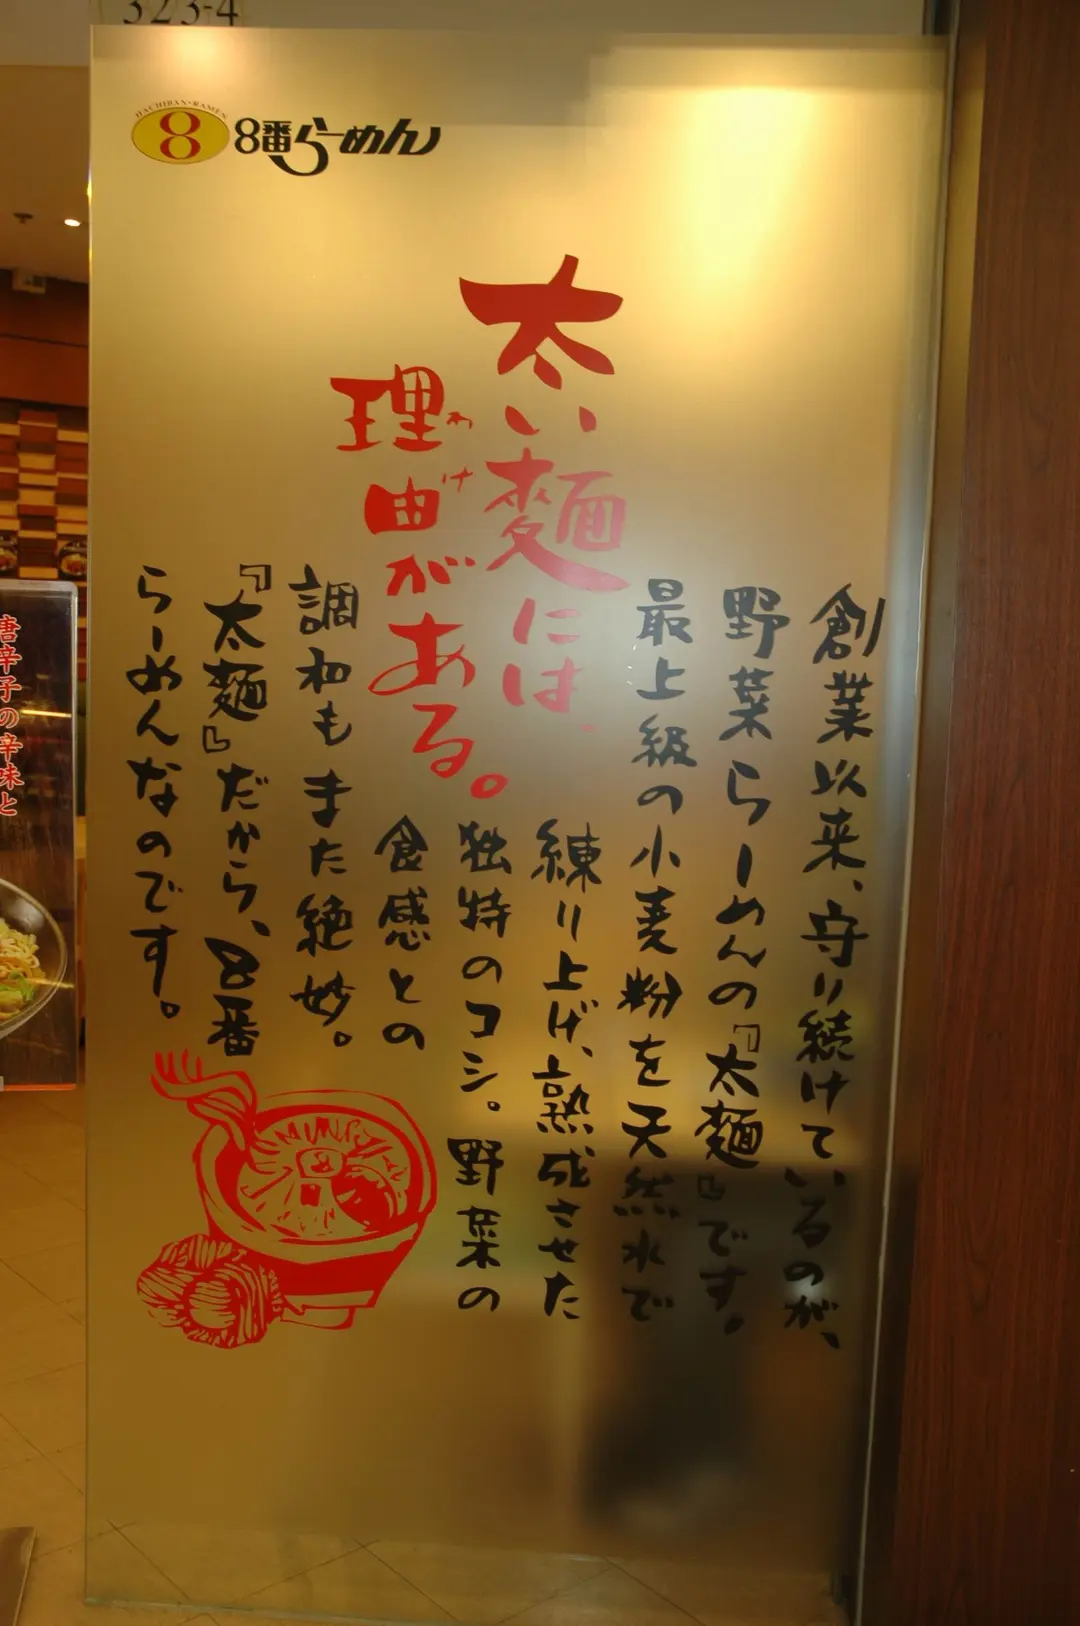 323-4
HACHIBAN・RAMEN
8
8番らーめん
太い麺には、
理由がある。
わけ
創業以来、守り続けているのが、
野菜らーめんの『太麺』です。
最上級の小麦粉を天然水で
練り上げ、熟成させた
独特のコシ。野菜の
食感との
調和もまた絶妙。
『太麺』だから、8番
らーめんなのです。
唐辛子の辛味と